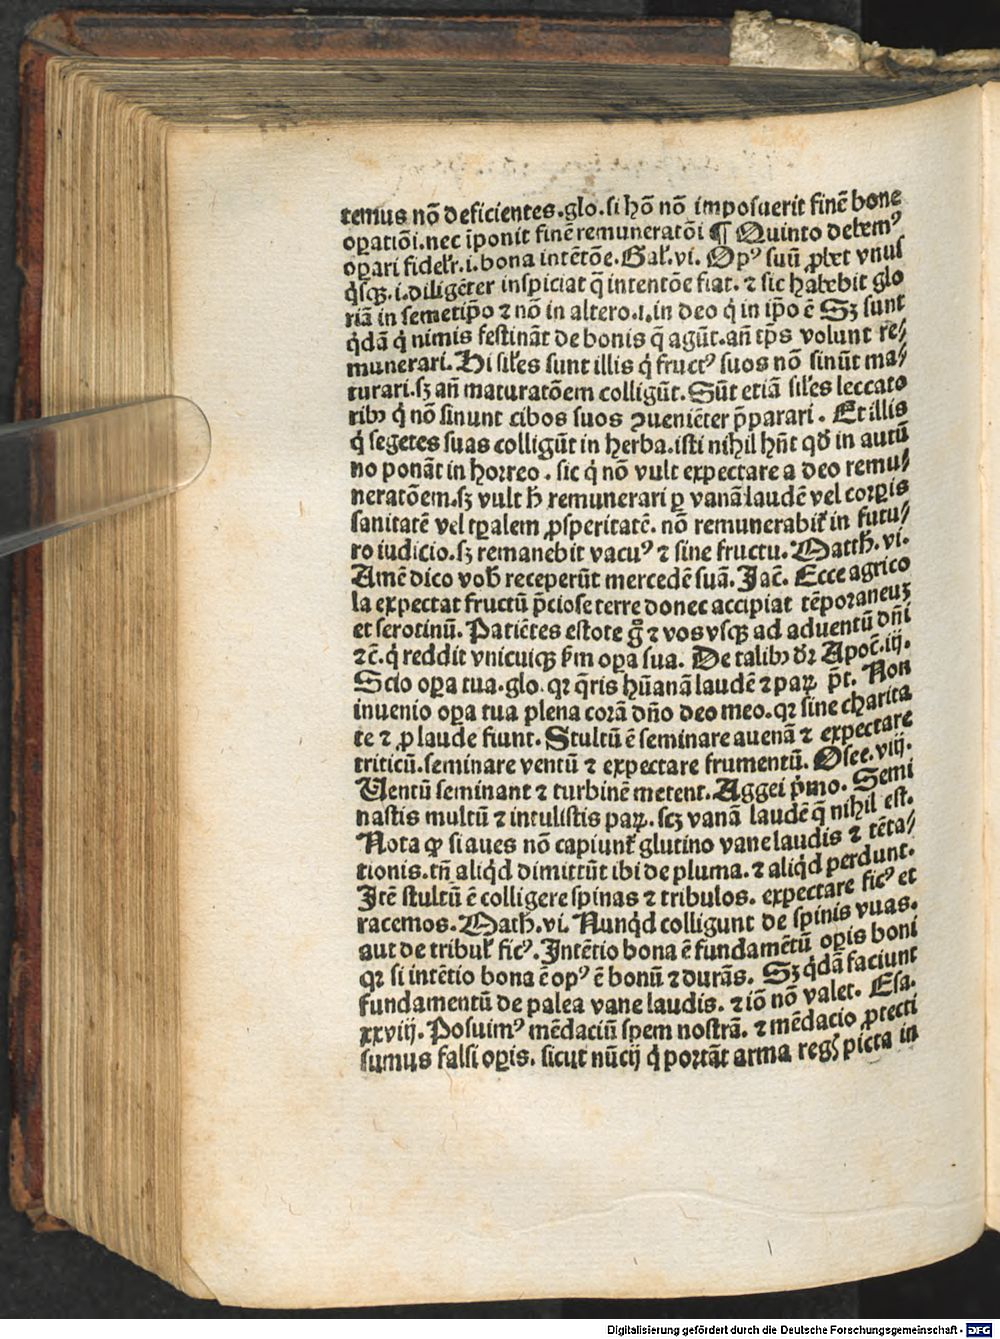 temus nō deficientes.glo.si hō nō imposuerit finē bone
oꝑatiōi.nec īponit finē remuneratōi ¶ Quinto debemꝰ
oꝑari fidelr̃.i.bona intētōe.Gal̃.vi. Opꝰ suū ꝓbet vnus
q̇sqꝫ.i.diligēter inspiciat q̄ intentōe fiat. ⁊ sic habebit glo
riā in semetip̄o ⁊ nō in altero.i.in deo q̇ in ip̄o ē Sꝫ sunt
q̇dā q̇ nimis festināt de bonis q̄ agūt.an̄ tp̄s volunt re⸗
munerari. Hi sil̃es sunt illis q̇ fructꝰ suos nō sinūt ma⸗
turari.sꝫ an̄ maturatōem colligūt. Sūt etiā sil̃es leccato
ribꝰ q̇ nō sinunt cibos suos ꝯueniēter p̄parari . Et illis
q̇ segetes suas colligūt in herba.isti nihil hn̄t qd̄ in autū
no ponāt in horreo . sic q̇ nō vult expectare a deo remu⸗
neratōem.sꝫ vult h̄ remunerari ꝑ vanā laudē vel corꝑis
sanitatē vel tꝑalem ꝓsperitatē. nō remunerabit᷑ in futu⸗
ro iudicio.sꝫ remanebit vacuꝰ ⁊ sine fructu. Matth̄.vi.
Amē dico vob̄ receperūt mercedē suā. Jac̄. Ecce agrico
la expectat fructū p̄ciose terre donec accipiat tēporaneuꝫ
et serotinū. Patiētes estote g̊ ⁊ vos vsqꝫ ad aduentū dn̄i
⁊c̄.q̇ reddit vnicuiqꝫ ẜm oꝑa sua. De talibꝰ dr̄ Apoc̄.iij.
Scio oꝑa tua.glo.qꝛ q̄ris hūanā laudē ⁊ paꝝ p̄t. Non
inuenio oꝑa tua plena corā dn̄o deo meo.qꝛ sine charita
te ⁊ ꝓ laude fiunt. Stultū ē seminare auenā ⁊ expectare
triticū.seminare ventū ⁊ expectare frumentū. Osee.viij.
Uentū seminant ⁊ turbinē metent. Aggei p̄mo. Semi
nastis multū ⁊ intulistis paꝝ. scꝫ vanā laudē q̄ nihil est.
Nota ꝙ si aues nō capiunt᷑ glutino vane laudis ⁊ tēta⸗
tionis.tn̄ aliq̇d dimittūt ibi de pluma. ⁊ aliq̇d perdunt.
Jtē stultū ē colligere spinas ⁊ tribulos. expectare ficꝰ et
racemos. Math̄.vi. Nunq̇d colligunt de spinis vuas.
aut de tribul̃ ficꝰ. Jntētio bona ē fundamētū oꝑis boni
qꝛ si intētio bona ē opꝰ ē bonū ⁊ durās. Sꝫ q̇dā faciunt
fundamentū de palea vane laudis. ⁊ iō nō valet. Esa.
xxviij. Posuimꝰ mēdaciū spem nostrā. ⁊ mēdacio ꝓtecti
sumus falsi oꝑis. sicut nūcij q̇ portāt arma regꝭ picta in
Digitalisierung gefördert durch die Deutsche Forschungsgemeinschaft - DFG